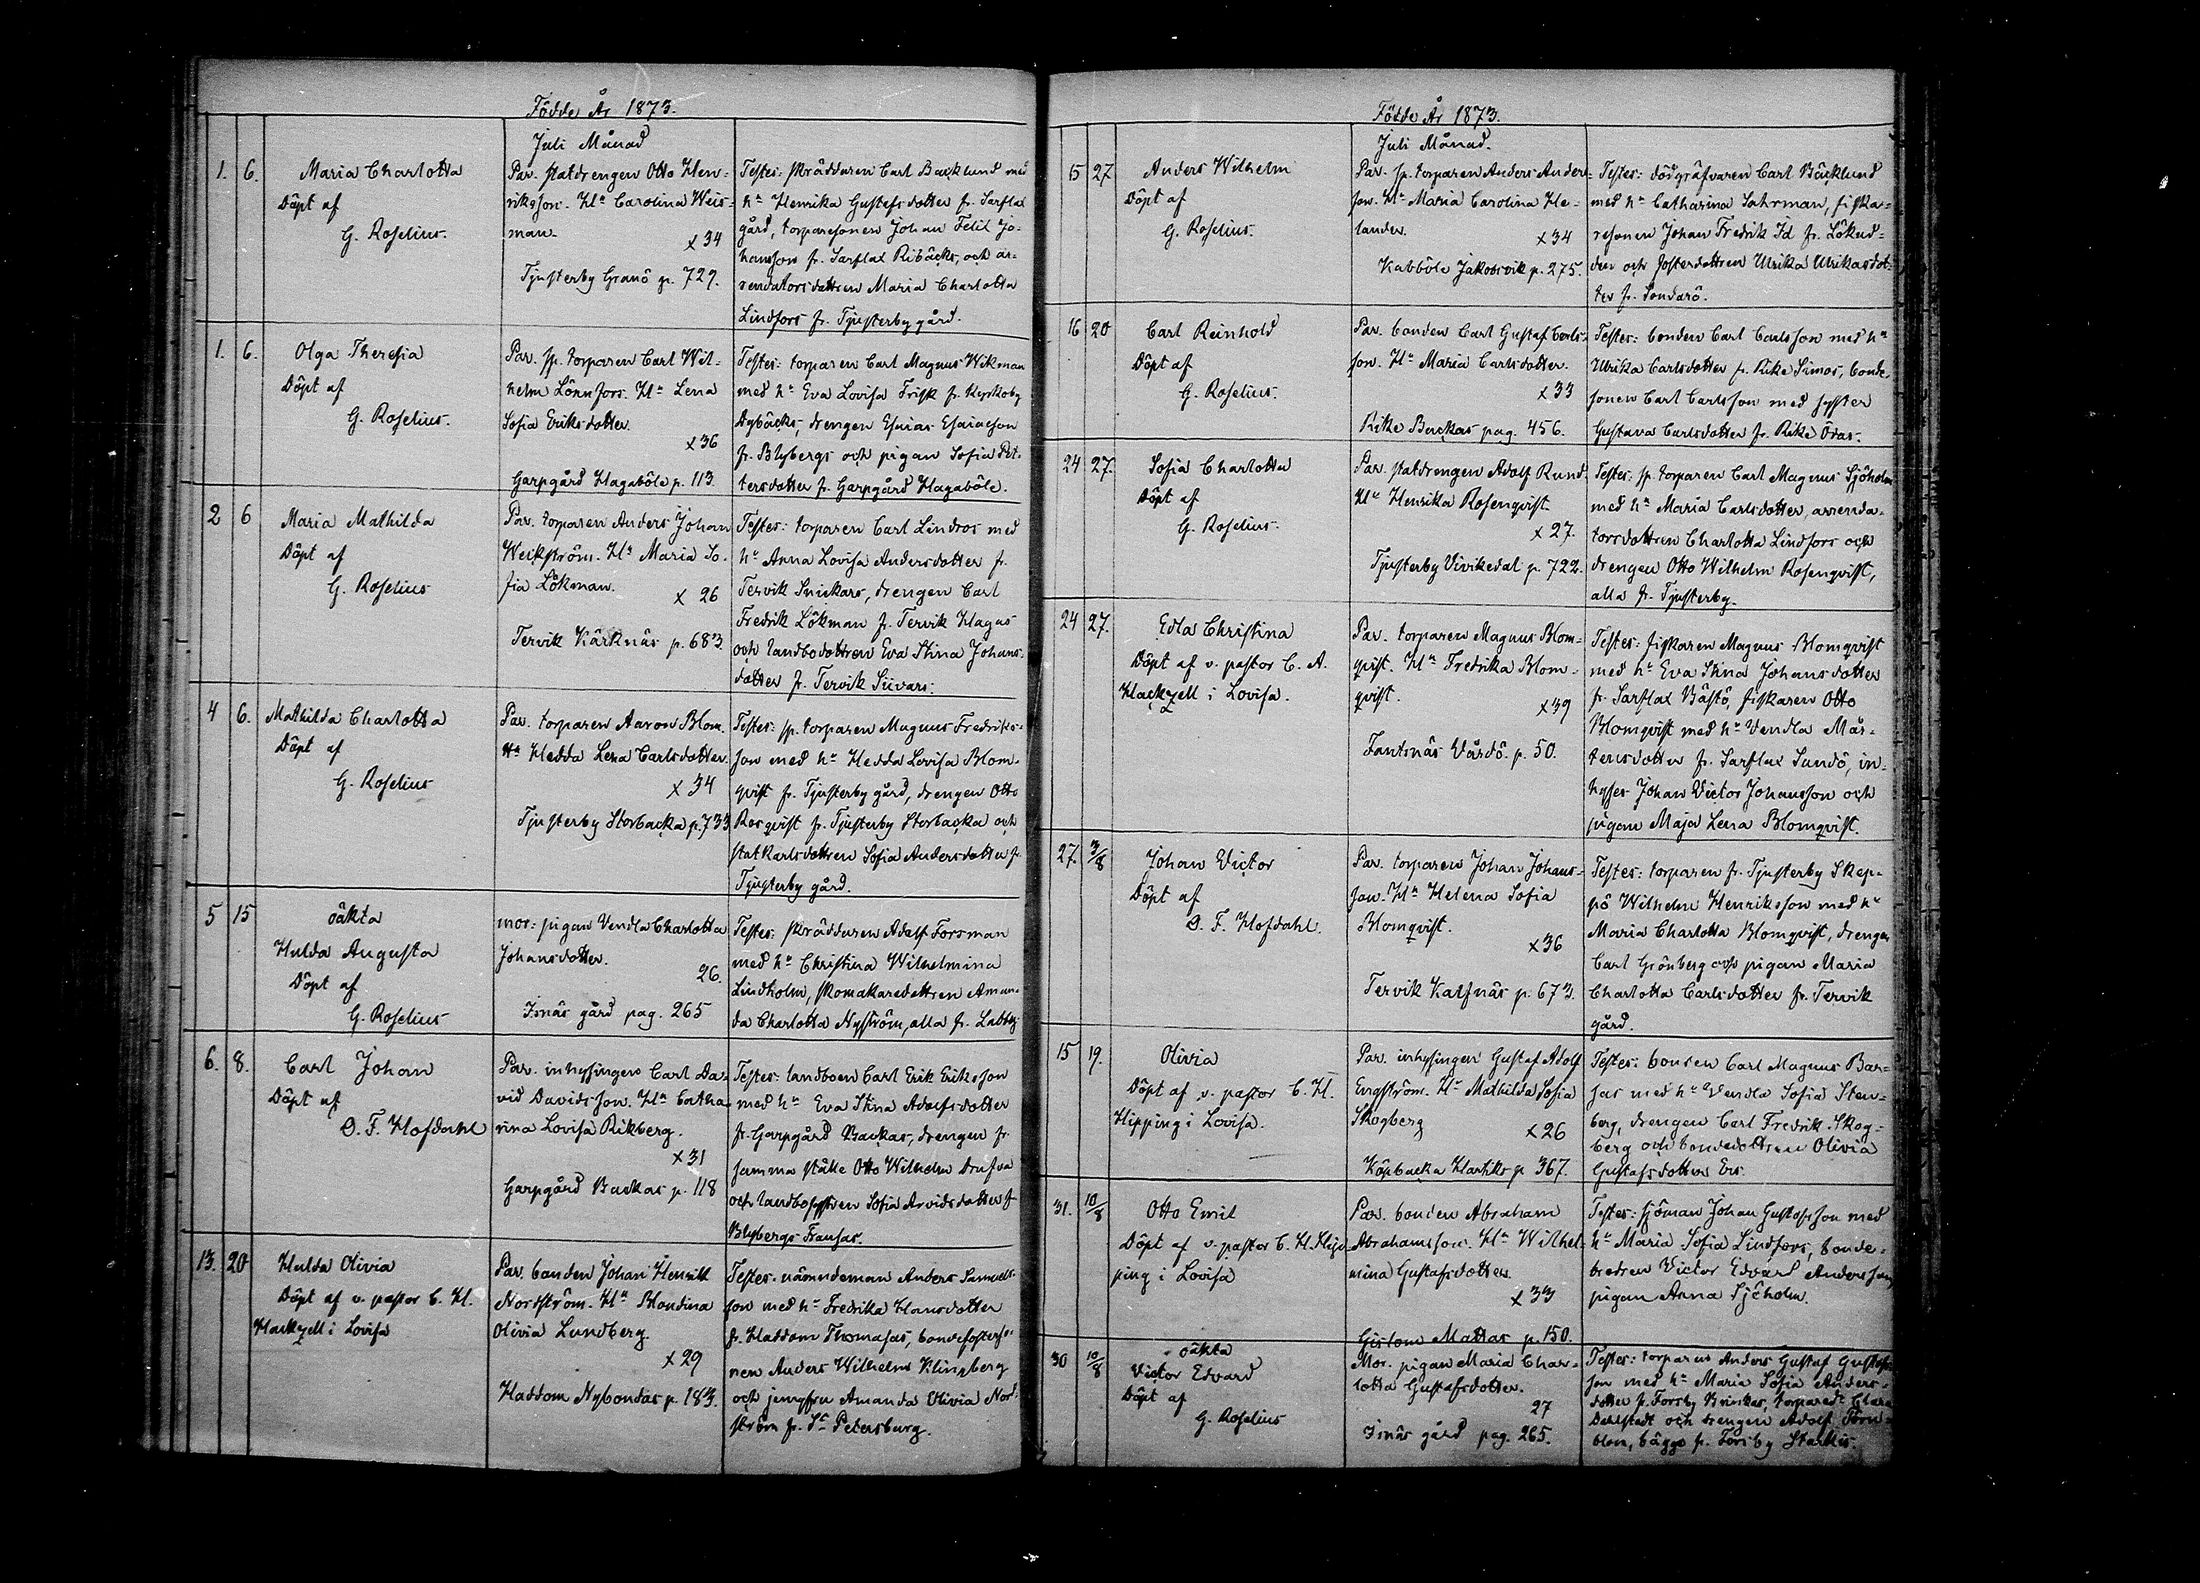 Födde År 1873.
Juli Månad
1. 6. Maria Charlotta
Döpt af
G. Roselius.
Par. statdrengen Otto Hen-
riksson. H:n Carolina Weis-
man.
x 34
Tjusterby Granö p. 729.
Testes: skräddaren Carl Backlund med
h:n Henrika Gustafsdotter fr. Sarflax
gård, torparesonen Johan Felix Jo-
hansson fr. Sarflax Ribäcks, och ar-
rendatorsdottren Maria Charlotta
Lindfors fr. Tjusterby gård.
1. 6. Olga Theresia
Döpt af
G. Roselius.
Par. sp. torparen Carl Wil-
helm Lönnfors. H:n Lena
Sofia Eriksdotter.
x 36
Garpgård Hagaböle p. 113.
Testes: torparen Carl Magnus Wikman
med h:n Eva Lovisa Frisk fr. Kyrkoby
Dybäcks, drengen Esaias Esaiasson
fr. Blybergs och pigan Sofia Pet-
tersdotter fr. Garpgård Hagaböle.
2 6 Maria Mathilda
Döpt af
G. Roselius
Par. torparen Anders Johan
Weckström. H:n Maria So-
fia Lökman.
x 26
Tervik Kärknäs p. 683.
Testes: torparen Carl Lindros med
h:n Anna Lovisa Andersdotter fr.
Tervik Snickars, drengen Carl
Fredrik Lökman fr. Tervik Hagas
och landbodottren Eva Stina Johans-
dotter fr. Tervik Siivars.
4 6. Mathilda Charlotta
Döpt af
G. Roselius
Par. torparen Aaron Blom.
H:n Hedda Lena Carlsdotter.
x 34
Tjusterby Storbacka p. 733
Testes: sp. torparen Magnus Fredriks-
son med h:n Hedda Lovisa Blom-
qvist fr. Tjusterby gård, drengen Otto
Rosqvist fr. Tjusterby Storbacka och
statkarlsdottren Sofia Andersdotter fr.
Tjusterby gård.
5 15 oäkta
Hulda Augusta
Döpt af
G. Roselius
mor: pigan Vendla Charlotta
Johansdotter.
26.
Isnäs gård pag. 265
Testes: skräddaren Adolf Forsman
med h:n Christina Wilhelmina
Lindholm, skomakaredottren Aman-
da Charlotta Nyström, alla fr. Labby
6. 8. Carl Johan
Döpt af
D. F. Hofdahl
Par. inhysingen Carl Da-
vid Davidsson. H:n Catha-
rina Lovisa Rikberg.
x 31
Garpgård Backas p. 118
Testes: landboen Carl Erik Eriksson
med h:n Eva Stina Adolfsdotter
fr. Garpgård Backas, drengen fr.
samma ställe Otto Wilhelm Drufva
och landbosystren Sofia Arvidsdotter fr
Blybergs Fransas.
13. 20 Hulda Olivia
Döpt af v. pastor C. H.
Hackzell i Lovisa
Par. bonden Johan Henrik
Nordström. H:n Blondina
Olivia Lundberg.
x 29
Haddom Nybondas p. 183.
Testes: nämndeman Anders Samuels-
son med h:n Fredrika Hansdotter
fr. Haddom Thomasas, bondefosterso-
nen Anders Wilhelm Klingberg
och jungfru Amanda Olivia Nord-
ström fr. S:t Petersburg.
Födde År 1873.
Juli Månad.
15 27 Anders Wilhelm
Döpt af
G. Roselius.
Par. sp. torparen Anders Anders-
son. H:n Maria Carolina He-
lander.
x 34
Kabböle Jakobsvik p. 275.
Testes: dödgräfvaren Carl Bäcklund
med h:n Catharina Sahrman, fiska-
resonen Johan Fredrik Id fr. Lökud-
den och fosterdottren Ulrika Ulrikasdot-
ter fr. Sondarö.
16 20 Carl Reinhold
Döpt af
G. Roselius.
Par. bonden Carl Gustaf Carls-
son. H:n Maria Carlsdotter.
x 33
Rike Backas pag. 456.
Testes: bonden Carl Carlsson med h:n
Ulrika Carlsdotter fr. Rike Simos, bonde-
sonen Carl Carlsson med syster
Gustava Carlsdotter fr. Rike Ödas.
24 27. Sofia Charlotta
Döpt af
G. Roselius.
Par. statdrengen Adolf Rund.
H:n Henrika Rosenqvist.
x 27.
Tjusterby Vivikedal p. 722.
Testes: sp. torparen Carl Magnus Sjöholm
med h:n Maria Carlsdotter, arrenda-
torsdottren Charlotta Lindfors och
drengen Otto Wilhelm Rosenqvist,
alla fr. Tjusterby.
24 27. Edla Christina
Döpt af v. pastor C. A.
Hackzell i Lovisa.
Par. torparen Magnus Blom-
qvist. H:n Fredrika Blom-
qvist.
x 39
Fantsnäs Vårdö. p. 50.
Testes: fiskaren Magnus Blomqvist
med h:n Eva Stina Johansdotter
fr. Sarflax Båstö, fiskaren Otto
Blomqvist med h:n Vendla Mår-
tensdotter fr. Sarflax Sundö, in-
hyses Johan Victor Johansson och
pigan Maja Lena Blomqvist.
27. 3/8 Johan Victor
Döpt af
D. F. Hofdahl.
Par. torparen Johan Johans-
son. H:n Helena Sofia
Blomqvist.
x 36
Tervik Kalfnäs p. 673.
Testes: torparen fr. Tjusterby Skep-
pö Wilhelm Henriksson med h:n
Maria Charlotta Blomqvist, drengen
Carl Grönberg och pigan Maria
Charlotta Carlsdotter fr. Tervik
gård.
15 19. Olivia
Döpt af v. pastor C. H.
Hipping i Lovisa.
Par. inhysingen Gustaf Adolf
Engström. H:n Mathilda Sofia
Skogberg
x 26
Köpbacka Hartiks p 367.
Testes: bonden Carl Magnus Bar-
sas med h:n Vendla Sofia Sten-
berg, drengen Carl Fredrik Skog-
berg och bondedottren Olivia
Gustafsdotter Ers.
31. 10/8 Otto Emil
Döpt af v. pastor C. H. Hip-
ping i Lovisa
Par. bonden Abraham
Abrahamsson. H:n Wilhel-
mina Gustafsdotter.
x 33
Gislom Mattas p. 150.
Testes: sjöman Johan Gustafsson med
h:n Maria Sofia Lindfors, bonde-
bredren Victor Edvard Andersson,
pigan Anna Sjöholm.
30 10/8 oäkta
Victor Edvard
Döpt af
G. Roselius
Mor. pigan Maria Char-
lotta Gustafsdotter.
27
Isnäs gård pag. 265.
Testes: torparen Anders Gustaf Gustafs-
son med h:n Maria Sofia Anders-
dotter fr. Forsby Brinkas, torpared:r Clara
Dahlstedt och drengen Adolf Törn-
blom, bägge fr. Forsby Starkis.